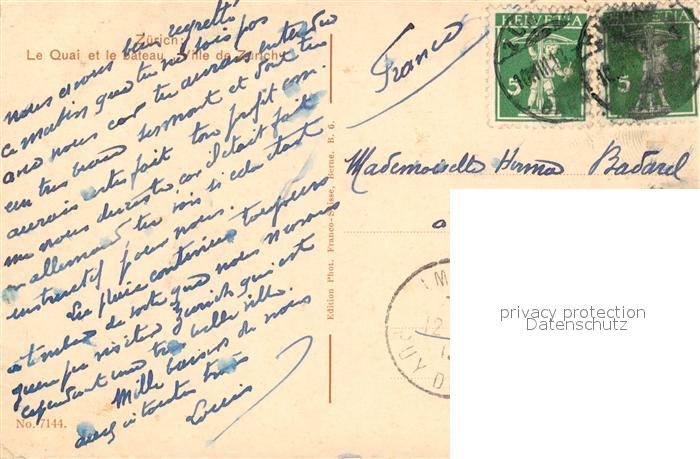 Zürich:
Le Quai et le bateau „Ville de Zurich"
nous avons bien regretté
ce matin que tu ne sois pas
avec nous car tu aurais entendu
un très beau sermont et dont tu
aurais certes fait ton profit com
me nous du reste, car il était fait
en allemand tu vois si cela était
instructif pour nous.
La pluie continue toujours
à tomber de sorte que nous n'avons
guère pu visiter Zurich qui est
cependant une très belle ville.
Mille baisers de nous
à toutes trois
Louis
No. 7144.
Edition Phot. Franco-Suisse, Berne. B. 6.
Franco
HELVETIA
5
HELVETIA
5
Mademoiselle Badarel
privacy protection
Datenschutz
PUY